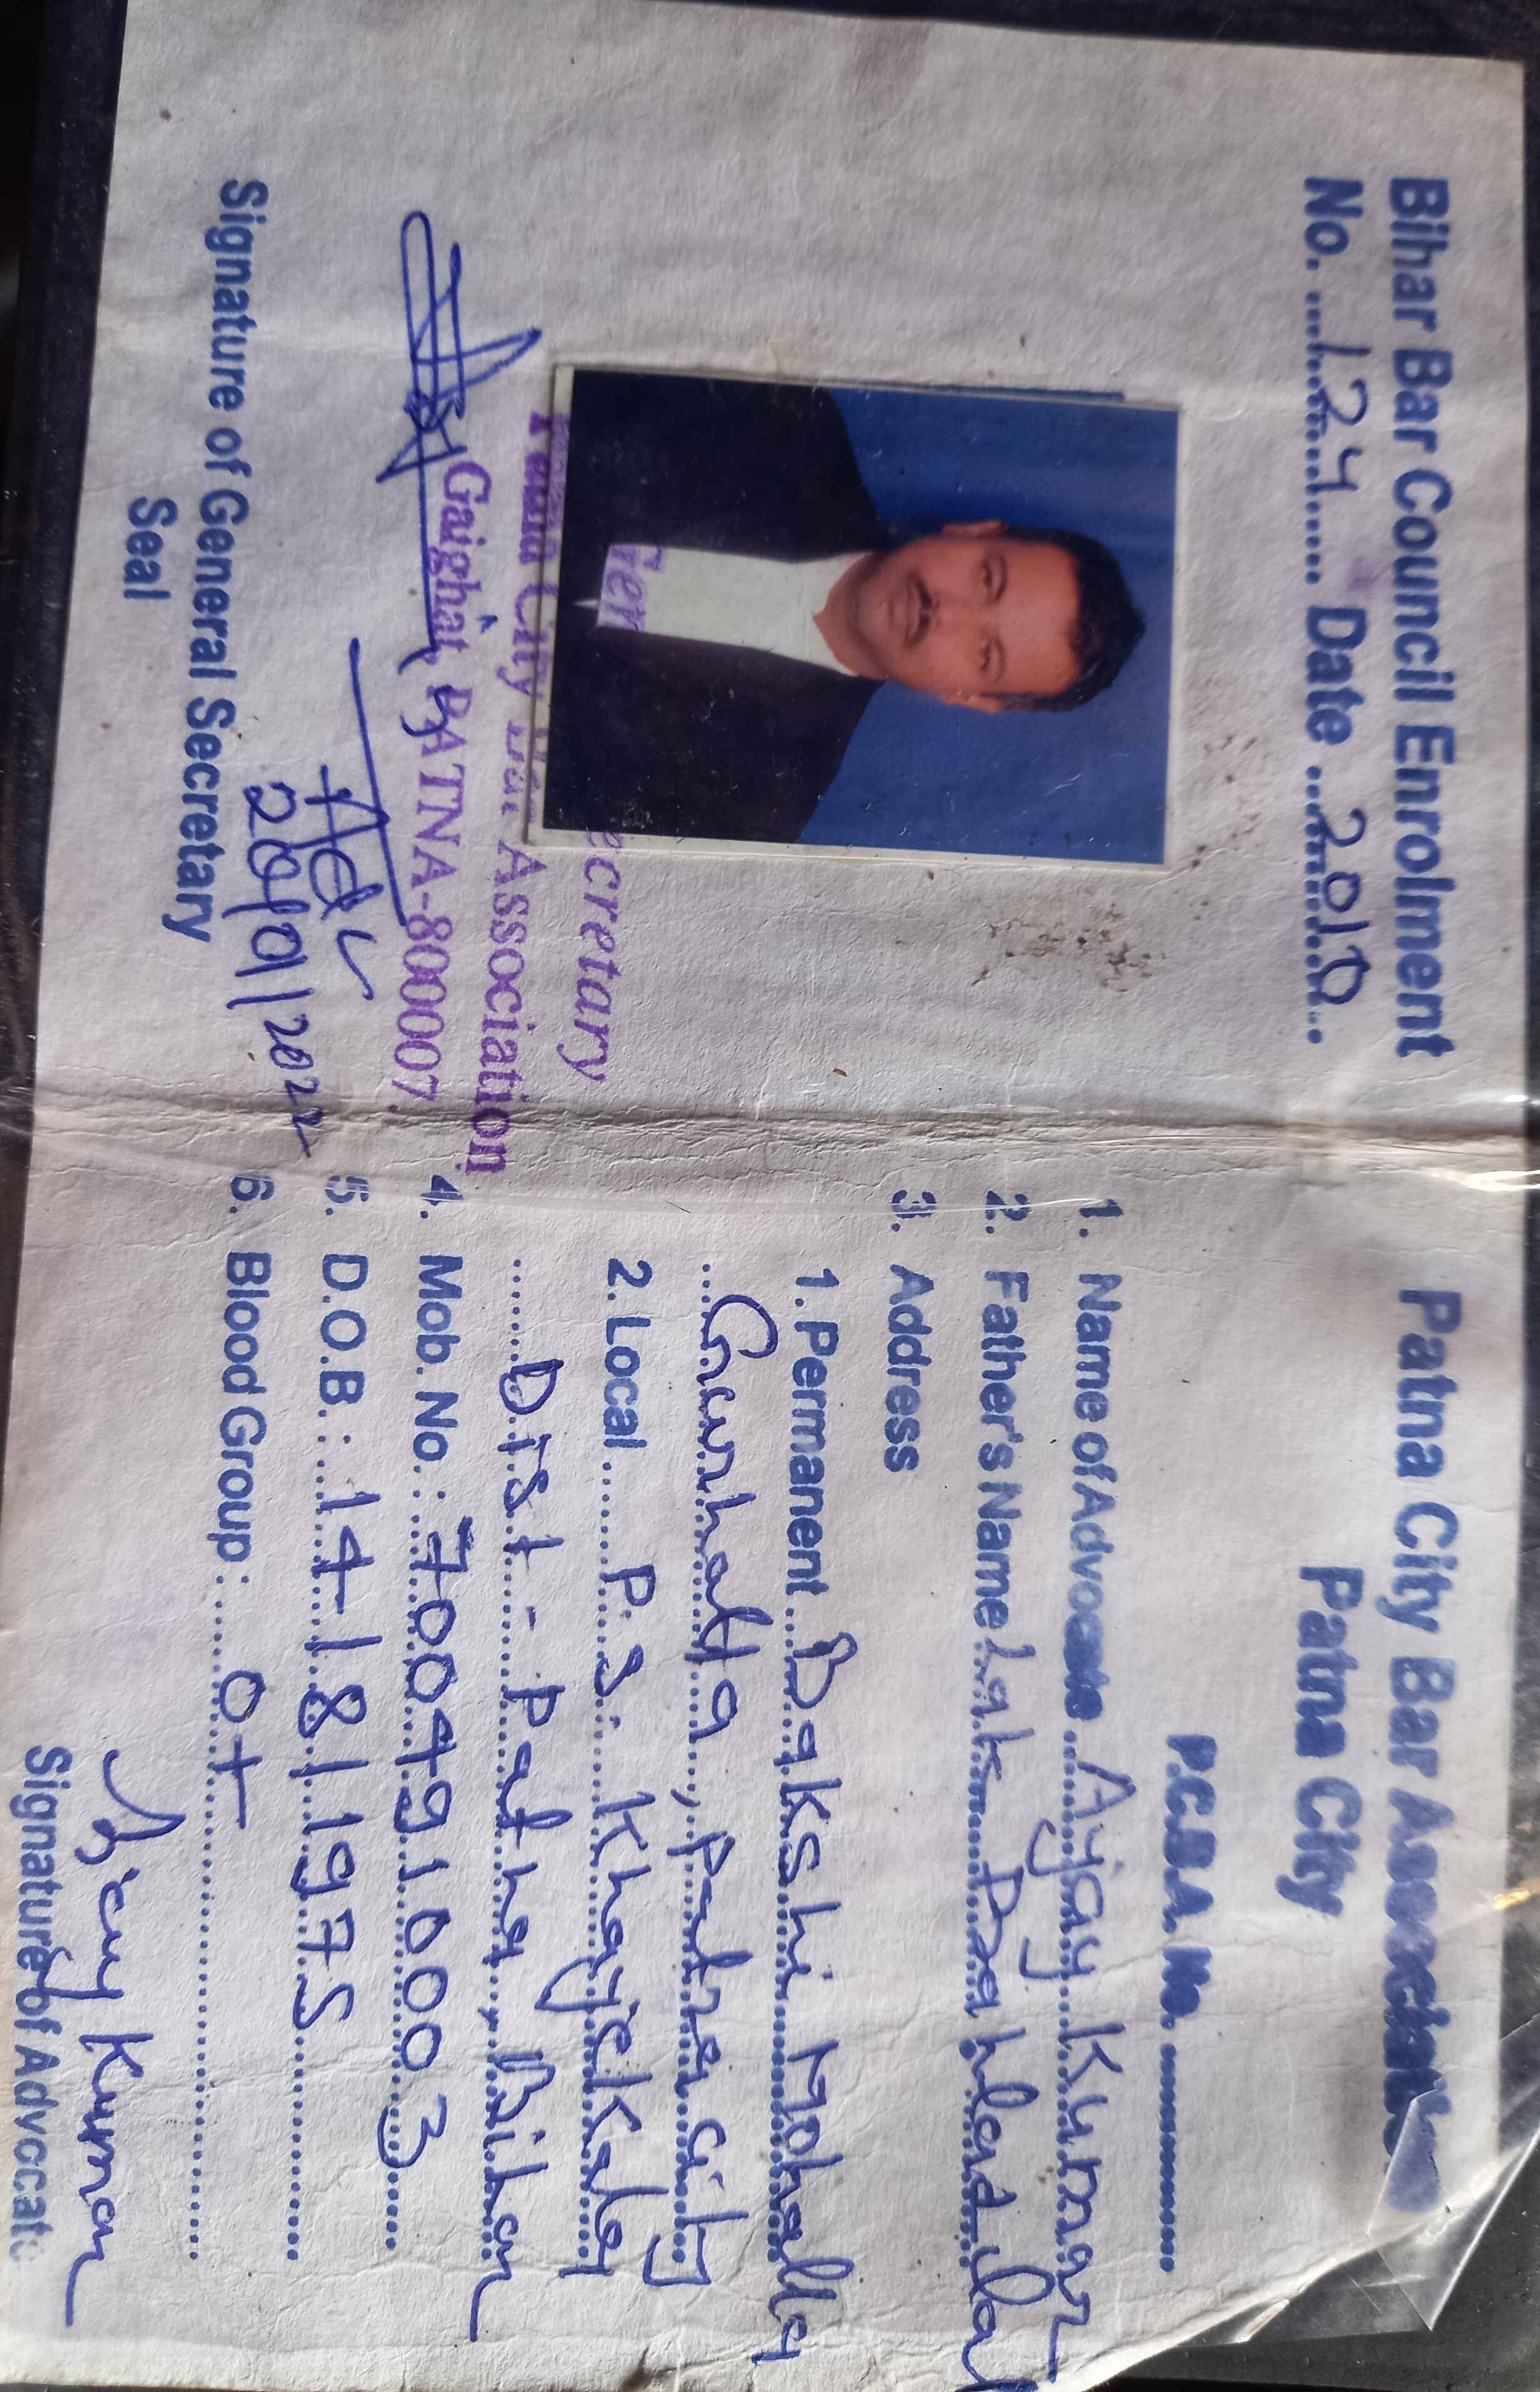 Bihar Bar Council Enrolment
No. ...124... Date ...2010...
Secretary
Patna City Bar Association
Gaighat, PATNA-800007.
Adv
28/01/2022
Signature of General Secretary
Seal
Patna City Bar Association
Patna City
P.C.B.A. No. ............
1. Name of Advocate ...Ajay Kumar
2. Father's Name Late Prahlad Lal
3. Address
1. Permanent ...Bakshi Mohalla
...Gaurhatta, Patna City
2. Local ...P.S. Khajekala
...Dist - Patna, Bihar
4. Mob. No. : 7004910003
5. D.O.B. : 14/8/1975
6. Blood Group : O+
Ajay Kumar
Signature of Advocate